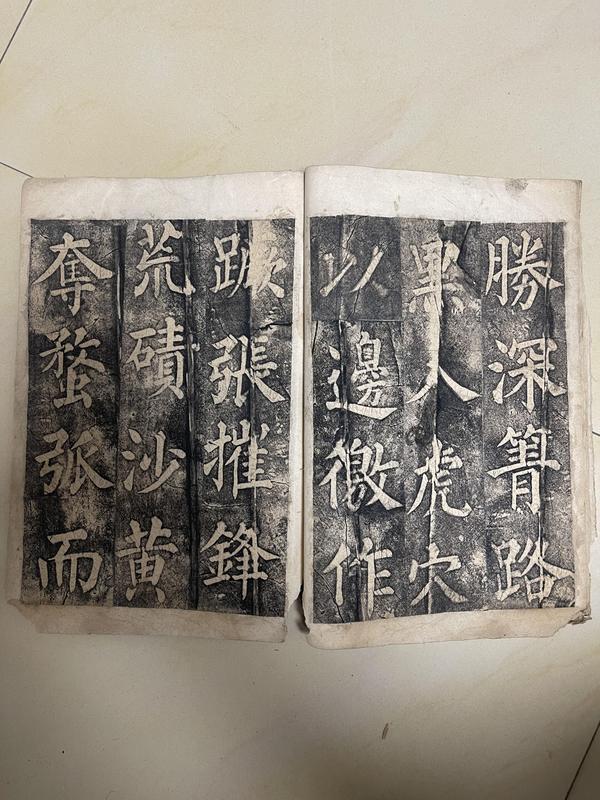 勝深箐路
黑入虎穴
以邊徼作
張摧鋒
荒磧沙黄
奪蝥弧而